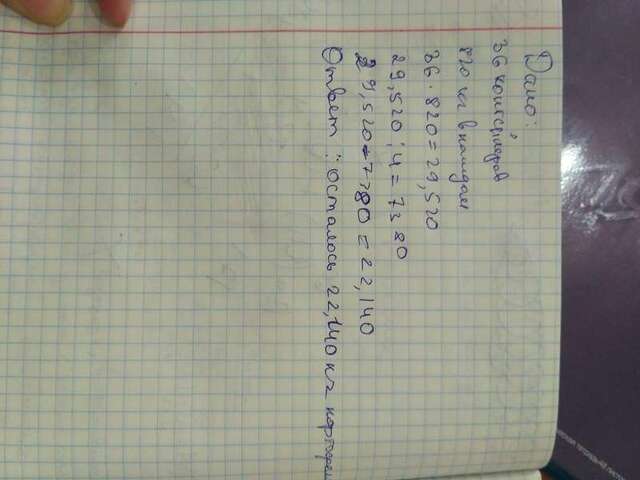 Дано:
36 контейнеров
820 кг в каждом
36 · 820 = 29,520
29,520 : 4 = 7380
29,520 - 7380 = 22,140
Ответ: осталось 22,140 кг картофел